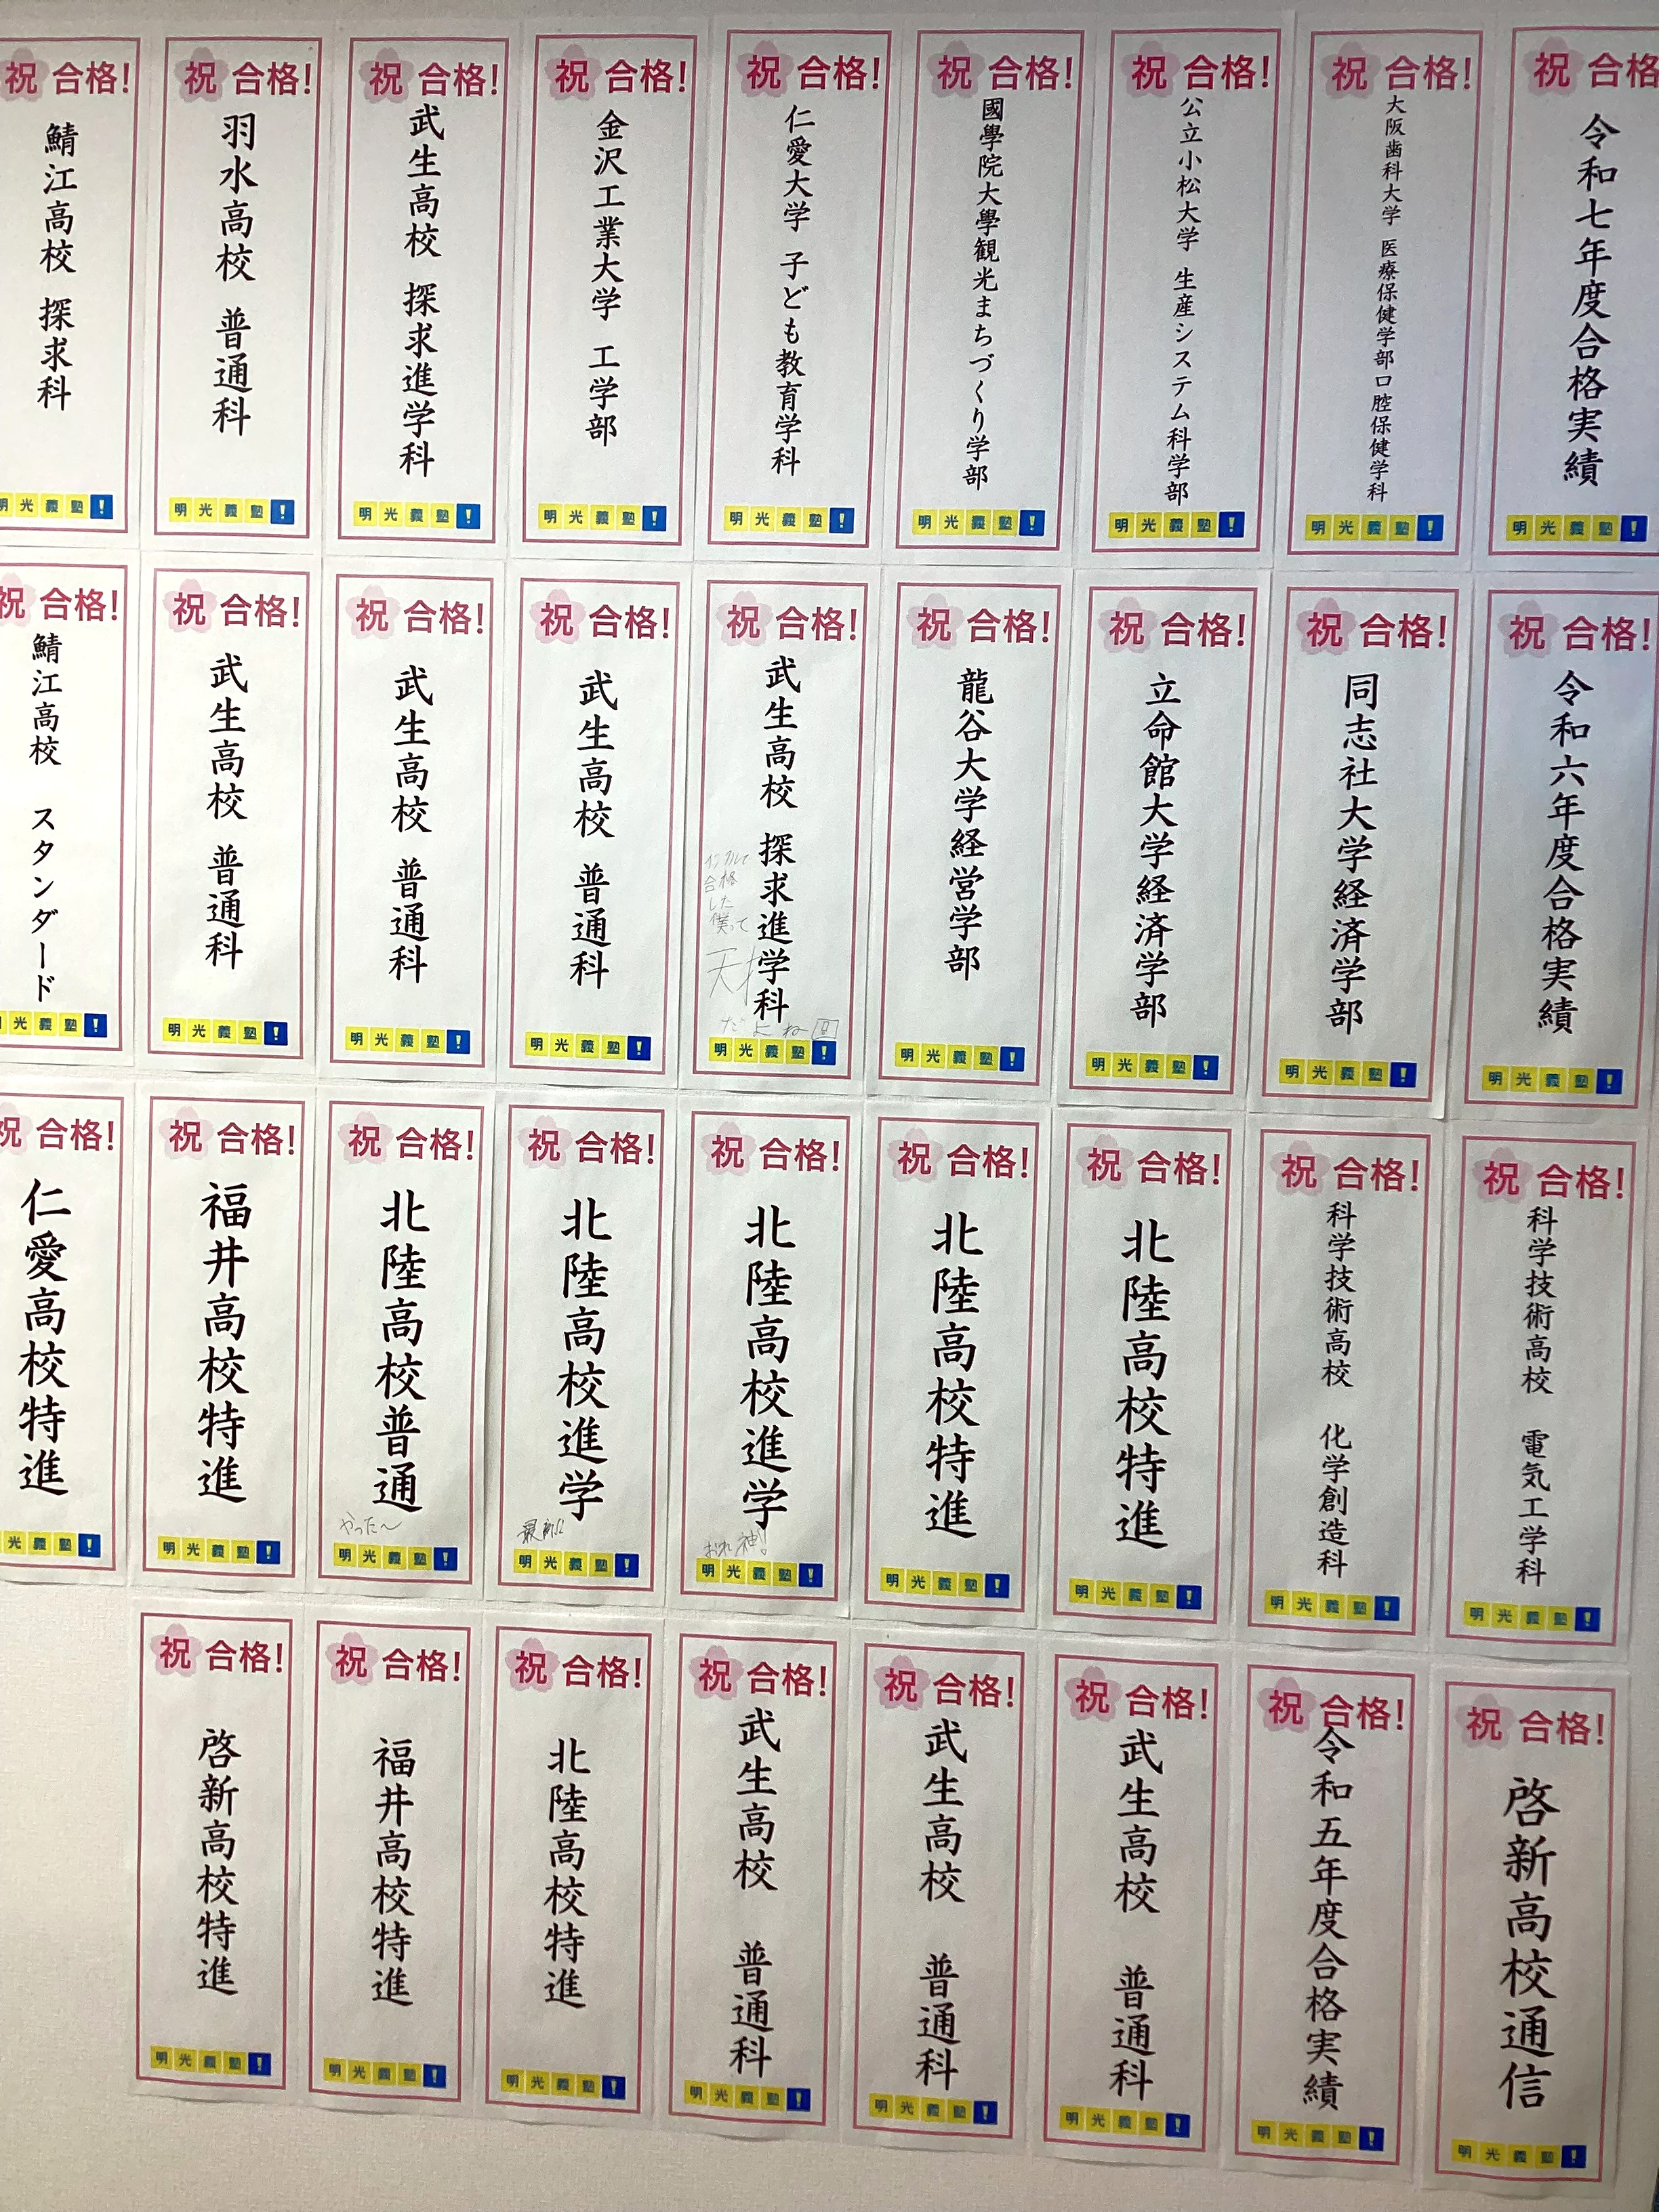 祝 合格!
令和七年度合格実績
明光義塾!
祝 合格!
大阪歯科大学 医療保健学部口腔保健学科
明光義塾!
祝 合格!
公立小松大学 生産システム科学部
明光義塾!
祝 合格!
國學院大學観光まちづくり学部
明光義塾!
祝 合格!
仁愛大学 子ども教育学科
明光義塾!
祝 合格!
金沢工業大学 工学部
明光義塾!
祝 合格!
武生高校 探求進学科
明光義塾!
祝 合格!
羽水高校 普通科
明光義塾!
祝 合格!
鯖江高校 探求科
明光義塾!
祝 合格!
令和六年度合格実績
明光義塾!
祝 合格!
同志社大学経済学部
明光義塾!
祝 合格!
立命館大学経済学部
明光義塾!
祝 合格!
龍谷大学経営学部
明光義塾!
祝 合格!
武生高校 探求進学科
合格
した
僕って
天才
だよね
明光義塾!
祝 合格!
武生高校 普通科
明光義塾!
祝 合格!
武生高校 普通科
明光義塾!
祝 合格!
武生高校 普通科
明光義塾!
祝 合格!
鯖江高校 スタンダード
光義塾!
祝 合格!
科学技術高校 電気工学科
明光義塾!
祝 合格!
科学技術高校 化学創造科
明光義塾!
祝 合格!
北陸高校特進
明光義塾!
祝 合格!
北陸高校特進
明光義塾!
祝 合格!
北陸高校進学
おれ神!!
明光義塾!
祝 合格!
北陸高校進学
明光義塾!
祝 合格!
北陸高校普通
やった〜
明光義塾!
祝 合格!
福井高校特進
明光義塾!
祝 合格!
仁愛高校特進
光義塾!
祝 合格!
啓新高校通信
明光義塾!
祝 合格!
令和五年度合格実績
明光義塾!
祝 合格!
武生高校 普通科
明光義塾!
祝 合格!
武生高校 普通科
明光義塾!
祝 合格!
武生高校 普通科
明光義塾!
祝 合格!
北陸高校特進
明光義塾!
祝 合格!
福井高校特進
明光義塾!
祝 合格!
啓新高校特進
明光義塾!